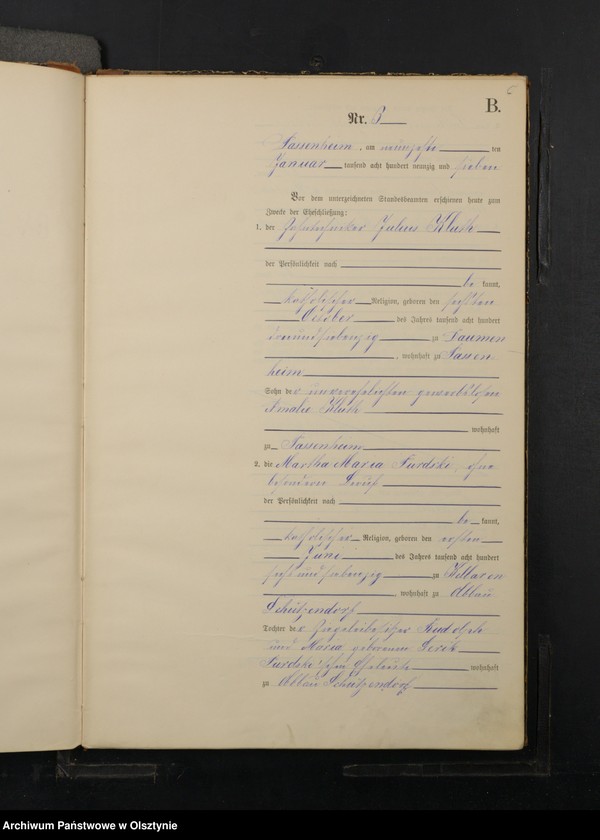 6
B.
Nr. 3
Passenheim, am neunzehn ten
Januar tausend acht hundert neunzig und sieben
Vor dem unterzeichneten Standesbeamten erschienen heute zum
Zwecke der Eheschließung:
1. der Julius Kluth
der Persönlichkeit nach
be kannt,
katholischer Religion, geboren den sechsten
October des Jahres tausend acht hundert
dreiundsiebenzig zu Daumen
, wohnhaft zu Passen
heim
Sohn der unverehelichten gewerblosen
Amalie Kluth
wohnhaft
zu Passenheim
2. die Martha Maria Turdski, ohne
besonderen Beruf
der Persönlichkeit nach
be kannt,
katholischer Religion, geboren den ersten
Juni des Jahres tausend acht hundert
sechs und siebenzig zu
, wohnhaft zu Abbau
Schützendorf
Tochter der Ziegeleibesitzer Rudolph
und Maria geborenen
Turdski'schen Eheleute wohnhaft
zu Abbau Schützendorf
Archiwum Państwowe w Olsztynie